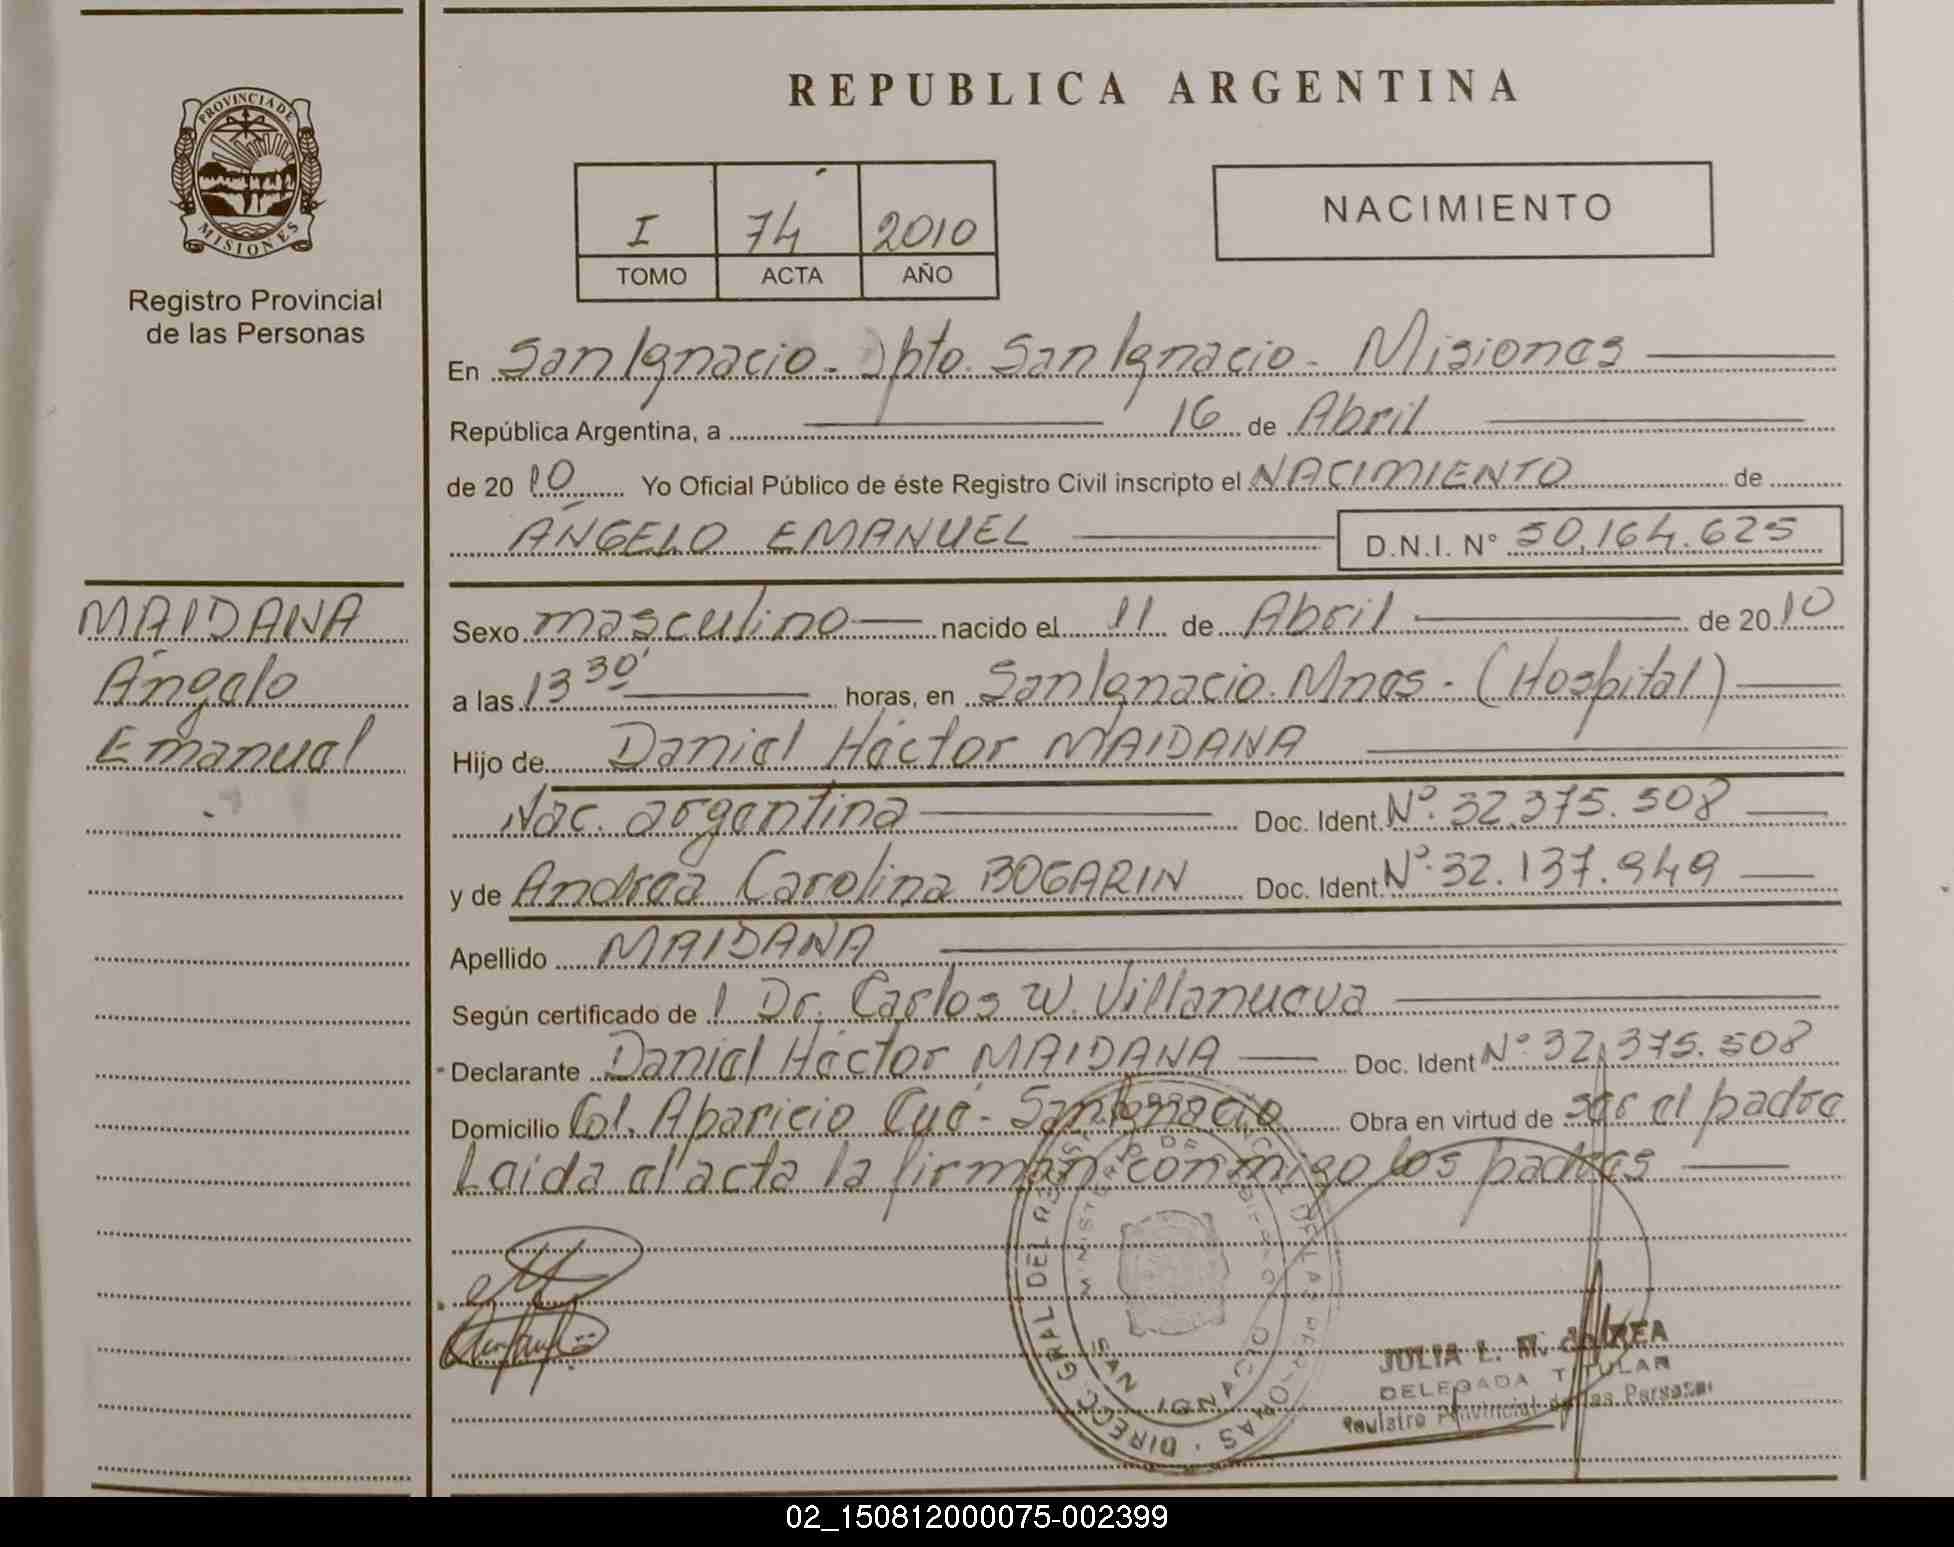 PROVINCIA DE
MISIONES
Registro Provincial
de las Personas
REPUBLICA ARGENTINA
I 74 2010
TOMO ACTA AÑO
NACIMIENTO
En San Ignacio - Dpto. San Ignacio - Misiones
República Argentina, a 16 de Abril
de 20 10 Yo Oficial Público de éste Registro Civil inscripto el NACIMIENTO de
ÁNGELO EMANUEL D.N.I. N° 50.164.625
MAIDANA
Ángelo
Emanuel
Sexo masculino nacido el 11 de Abril de 20 10
a las 13 30' horas, en San Ignacio. Mnes - (Hospital)
Hijo de Daniel Héctor MAIDANA
Nac. argentina Doc. Ident. Nº. 32.375.508
y de Andrea Carolina BOGARIN Doc. Ident. Nº. 32.137.949
Apellido MAIDANA
Según certificado de l Dr. Carlos W. Villanueva
Declarante Daniel Héctor MAIDANA Doc. Ident Nº 32.375.508
Domicilio Col. Aparicio Cué - San Ignacio Obra en virtud de ser el padre
Leida el acta la firman conmigo los padres
DIRECC. GRAL DEL
SAN IGNACIO
JULIA L. M. de
DELEGADA TITULAR
Registro Provincial de las Personas
02_150812000075-002399